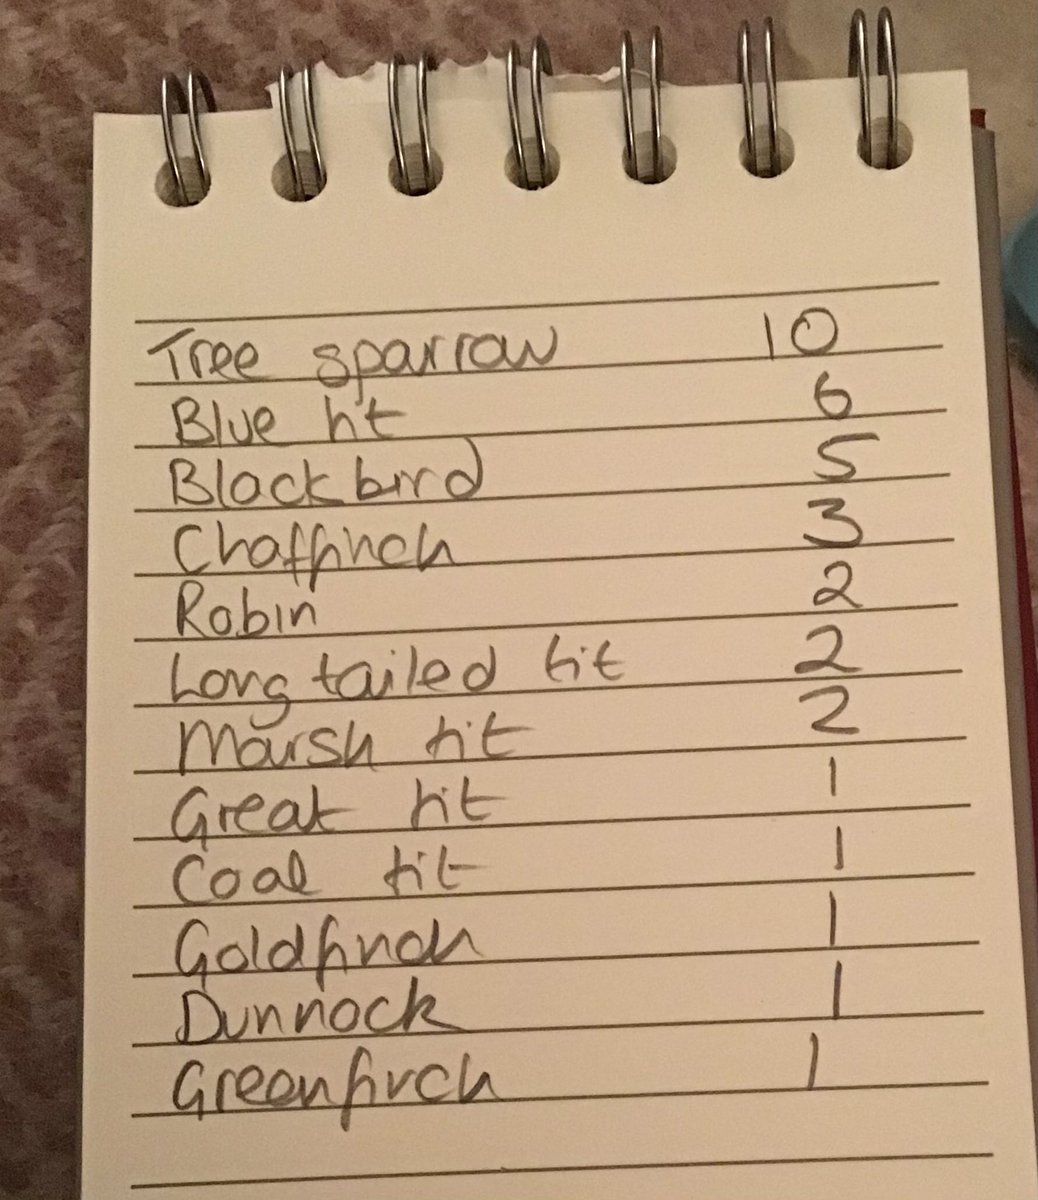 Tree sparrow 10
Blue tit 6
Blackbird 5
Chaffinch 3
Robin 2
Long tailed tit 2
Marsh tit 2
Great tit 1
Coal tit 1
Goldfinch 1
Dunnock 1
Greenfinch 1